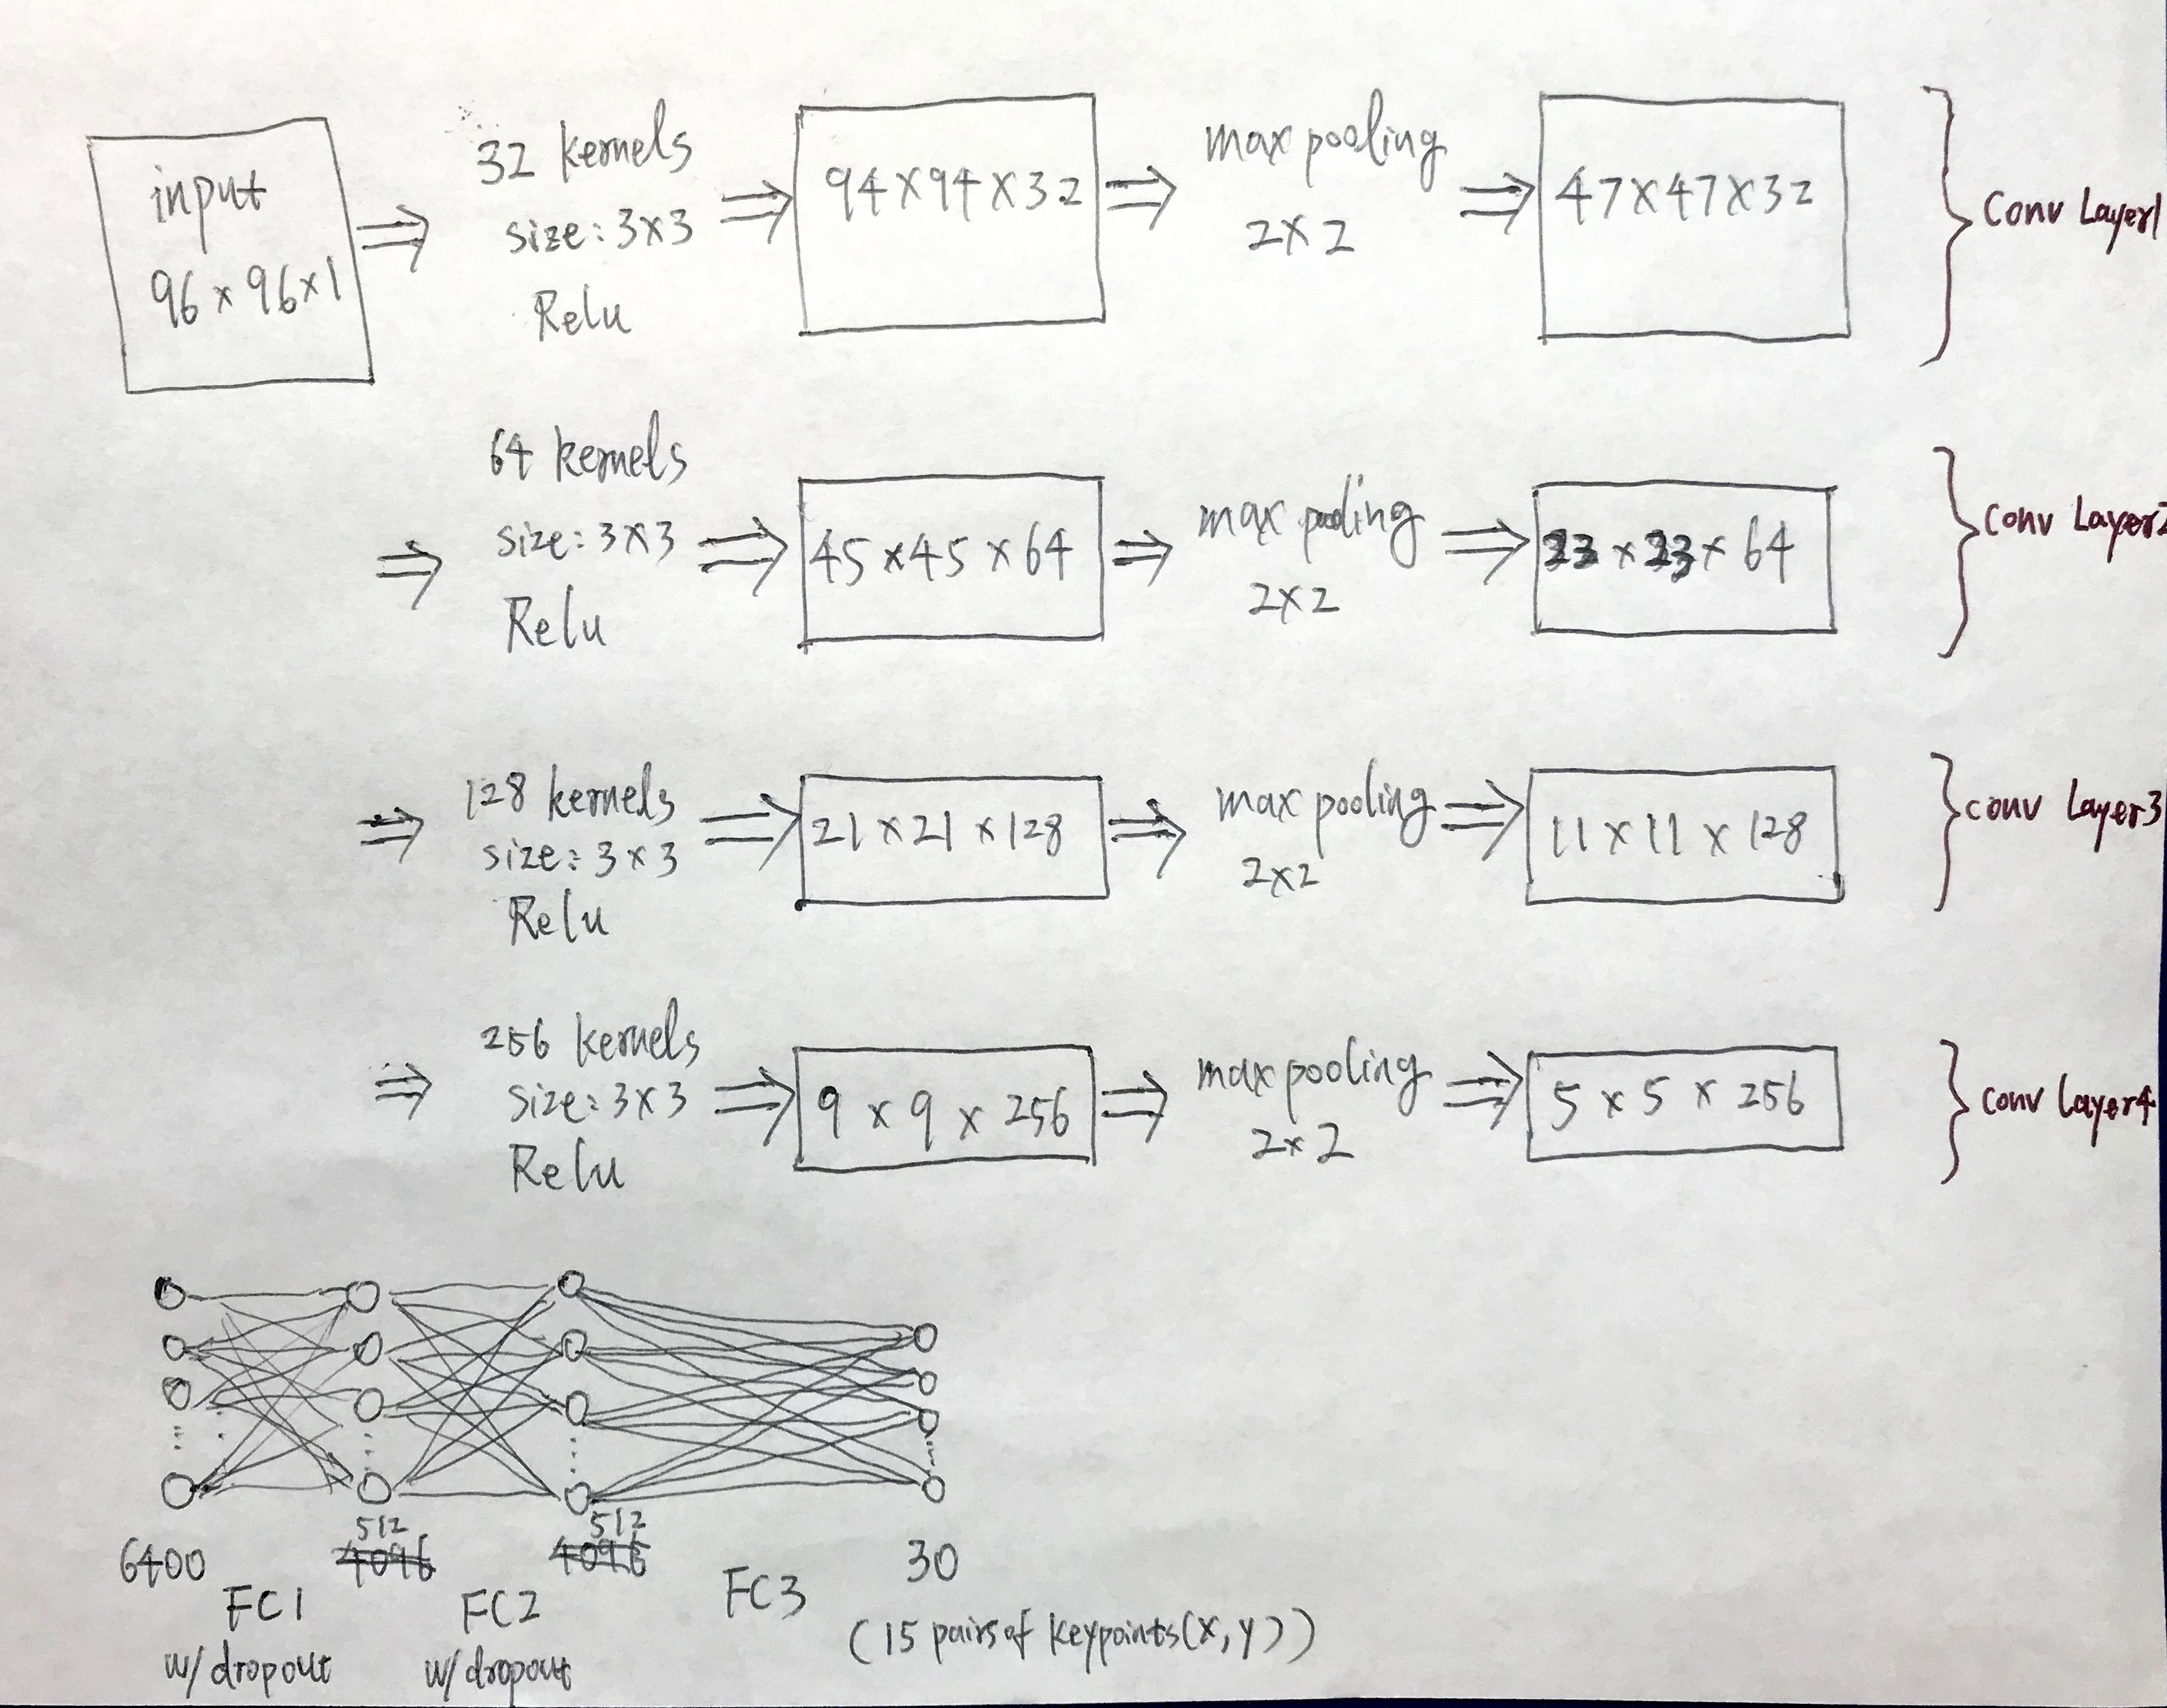 input
96 x 96 x 1
32 kernels
size: 3x3
Relu
94 x 94 x 32
max pooling
2x2
47 x 47 x 32
Conv Layer1
64 kernels
size: 3x3
Relu
45 x 45 x 64
max pooling
2x2
23 x 23 x 64
Conv Layer2
128 kernels
size: 3x3
Relu
21 x 21 x 128
max pooling
2x2
11 x 11 x 128
conv Layer3
256 kernels
size: 3x3
Relu
9 x 9 x 256
max pooling
2x2
5 x 5 x 256
conv layer4
512 512
6400 4096 4096 30
FC1 FC2 FC3
w/ dropout w/ dropout (15 pairs of keypoints(x, y))